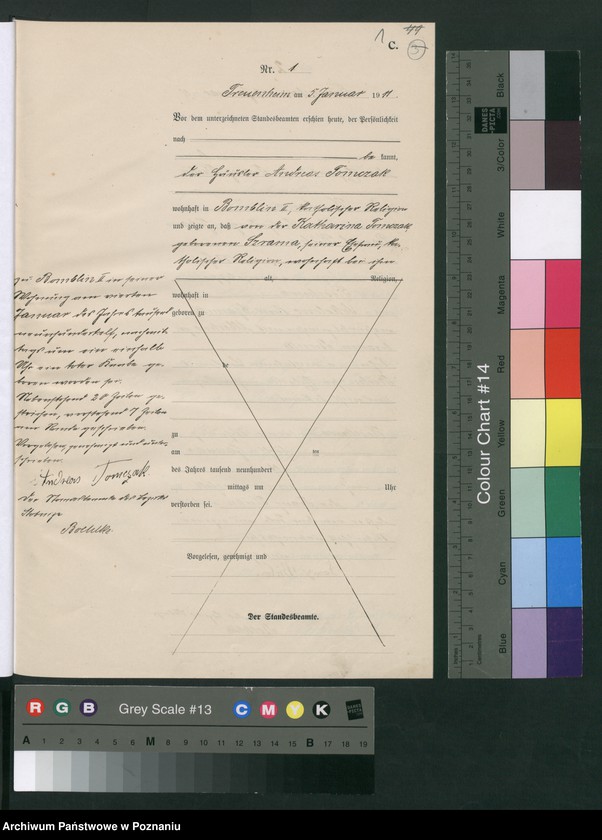 1 C.
Nr. 1
Treuenheim am 5. Januar 1911.
Vor dem unterzeichneten Standesbeamten erschien heute, der Persönlichkeit
nach
be kannt,
der Häusler Andreas Tomczak
wohnhaft in Bomblin II, katholischer Religion
und zeigte an, daß von der Katharina Tomczak
geborenen Szrama, seiner Ehefrau, ka-
tholischer Religion, wohnhaft bei ihm
alt, Religion,
wohnhaft in
geboren zu
zu
am
des Jahres tausend neunhundert
mittags um Uhr
verstorben sei.
Vorgelesen, genehmigt und
Der Standesbeamte.
zu Bomblin II in seiner
Wohnung am vierten
Januar des Jahres tausend
neunhundertelf, nachmit-
tags um vier einhalb
Uhr ein toter Knabe ge-
boren worden sei.
Nebenstehend 20 Zeilen ge-
strichen, vorstehend 7 Zeilen
am Rande geschrieben.
Vorgelesen, genehmigt und unter-
schrieben
Andreas Tomczak.
Der Standesbeamte des Bezirks
Colour Chart #14
Blue Cyan Green Yellow Red Magenta White 3/Color Black
DANES-PICTA
Inches
Centimetres
R G B Grey Scale #13 C M Y K
A 1 2 3 4 5 6 M 8 9 10 11 12 13 14 15 B 17 18 19
Archiwum Państwowe w Poznaniu